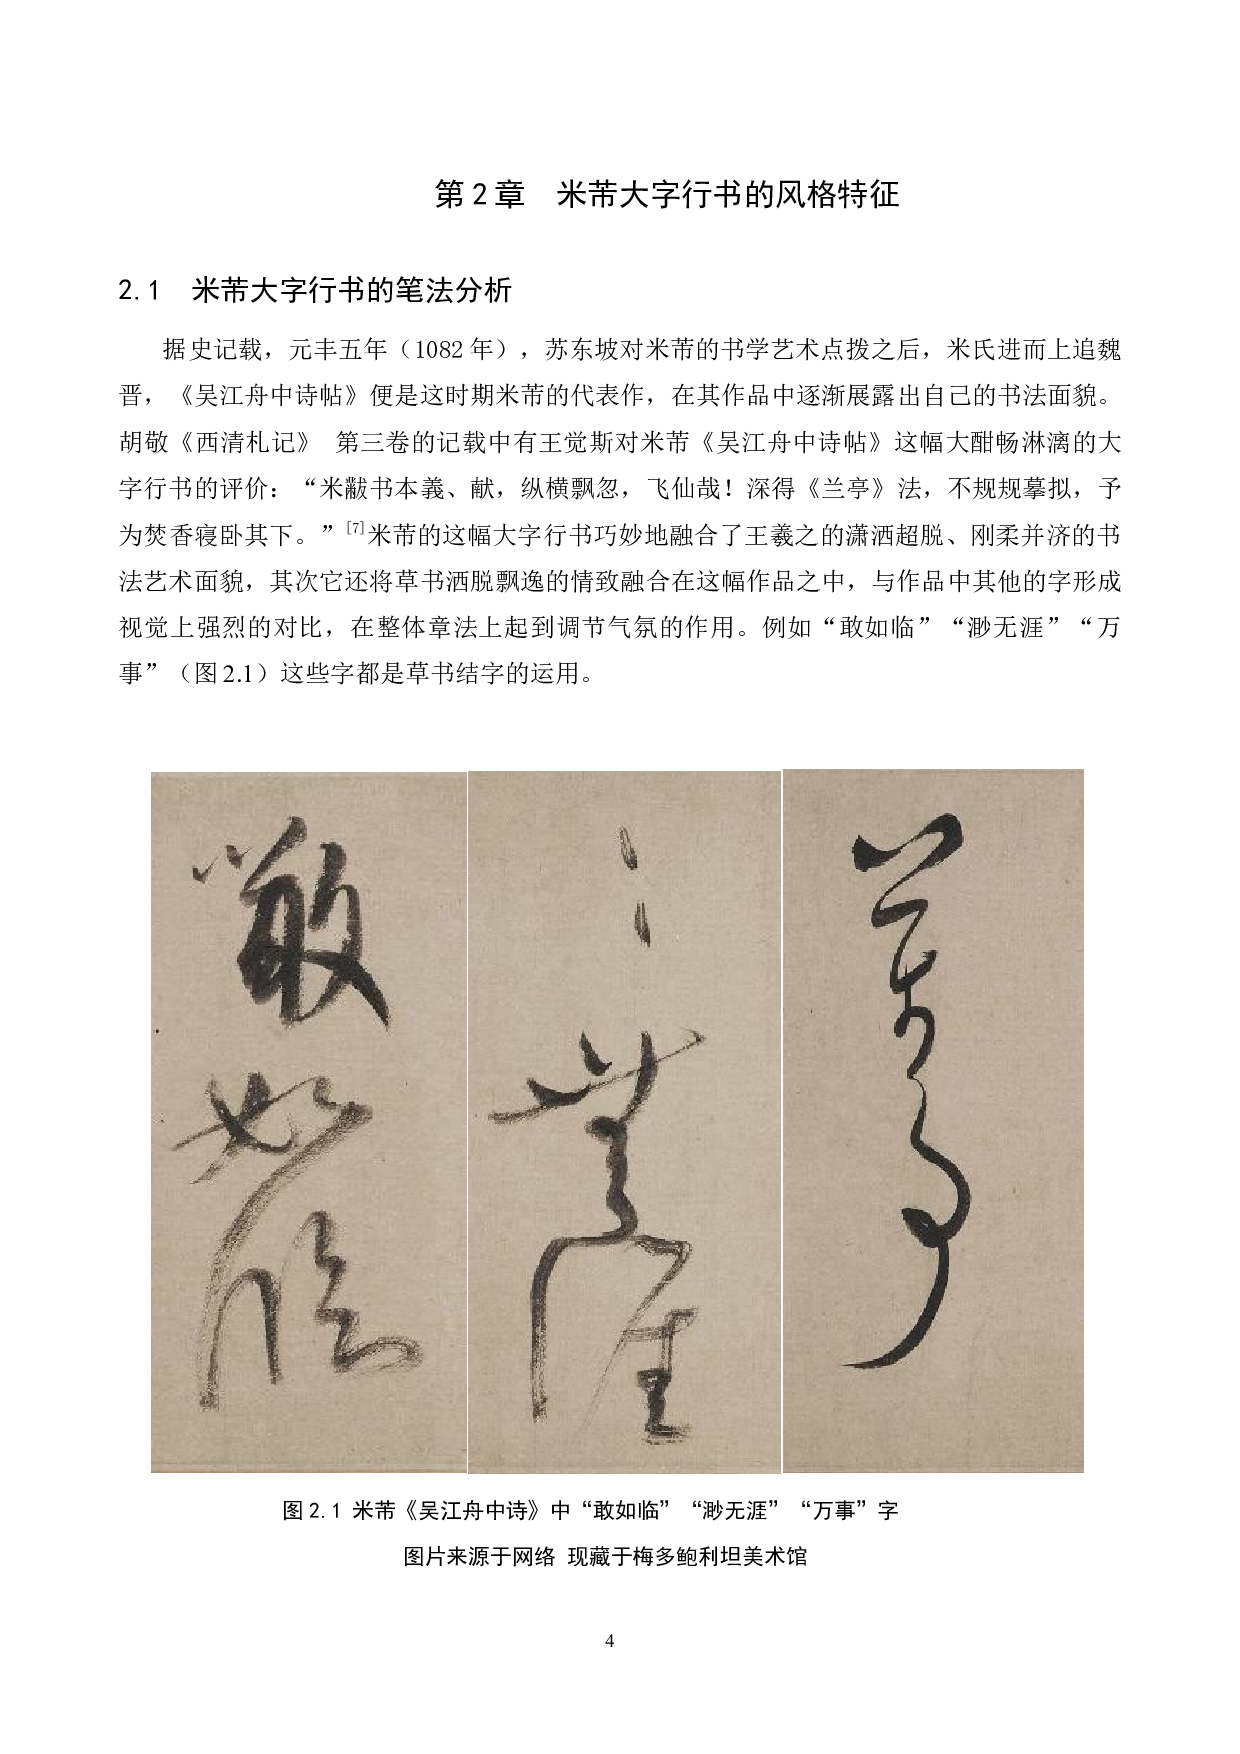 第2章 米芾大字行书的风格特征
2.1 米芾大字行书的笔法分析
据史记载，元丰五年（1082 年），苏东坡对米芾的书学艺术点拨之后，米氏进而上追魏
晋，《吴江舟中诗帖》便是这时期米芾的代表作，在其作品中逐渐展露出自己的书法面貌。
胡敬《西清札记》 第三卷的记载中有王觉斯对米芾《吴江舟中诗帖》这幅大酣畅淋漓的大
字行书的评价：“米黻书本義、献，纵横飘忽，飞仙哉！深得《兰亭》法，不规规摹拟，予
为焚香寝卧其下。”[7]米芾的这幅大字行书巧妙地融合了王羲之的潇洒超脱、刚柔并济的书
法艺术面貌，其次它还将草书洒脱飘逸的情致融合在这幅作品之中，与作品中其他的字形成
视觉上强烈的对比，在整体章法上起到调节气氛的作用。例如“敢如临”“渺无涯”“万
事”（图 2.1）这些字都是草书结字的运用。
敢如临
渺无涯
万事
图 2.1 米芾《吴江舟中诗》中“敢如临”“渺无涯”“万事”字
图片来源于网络 现藏于梅多鲍利坦美术馆
4